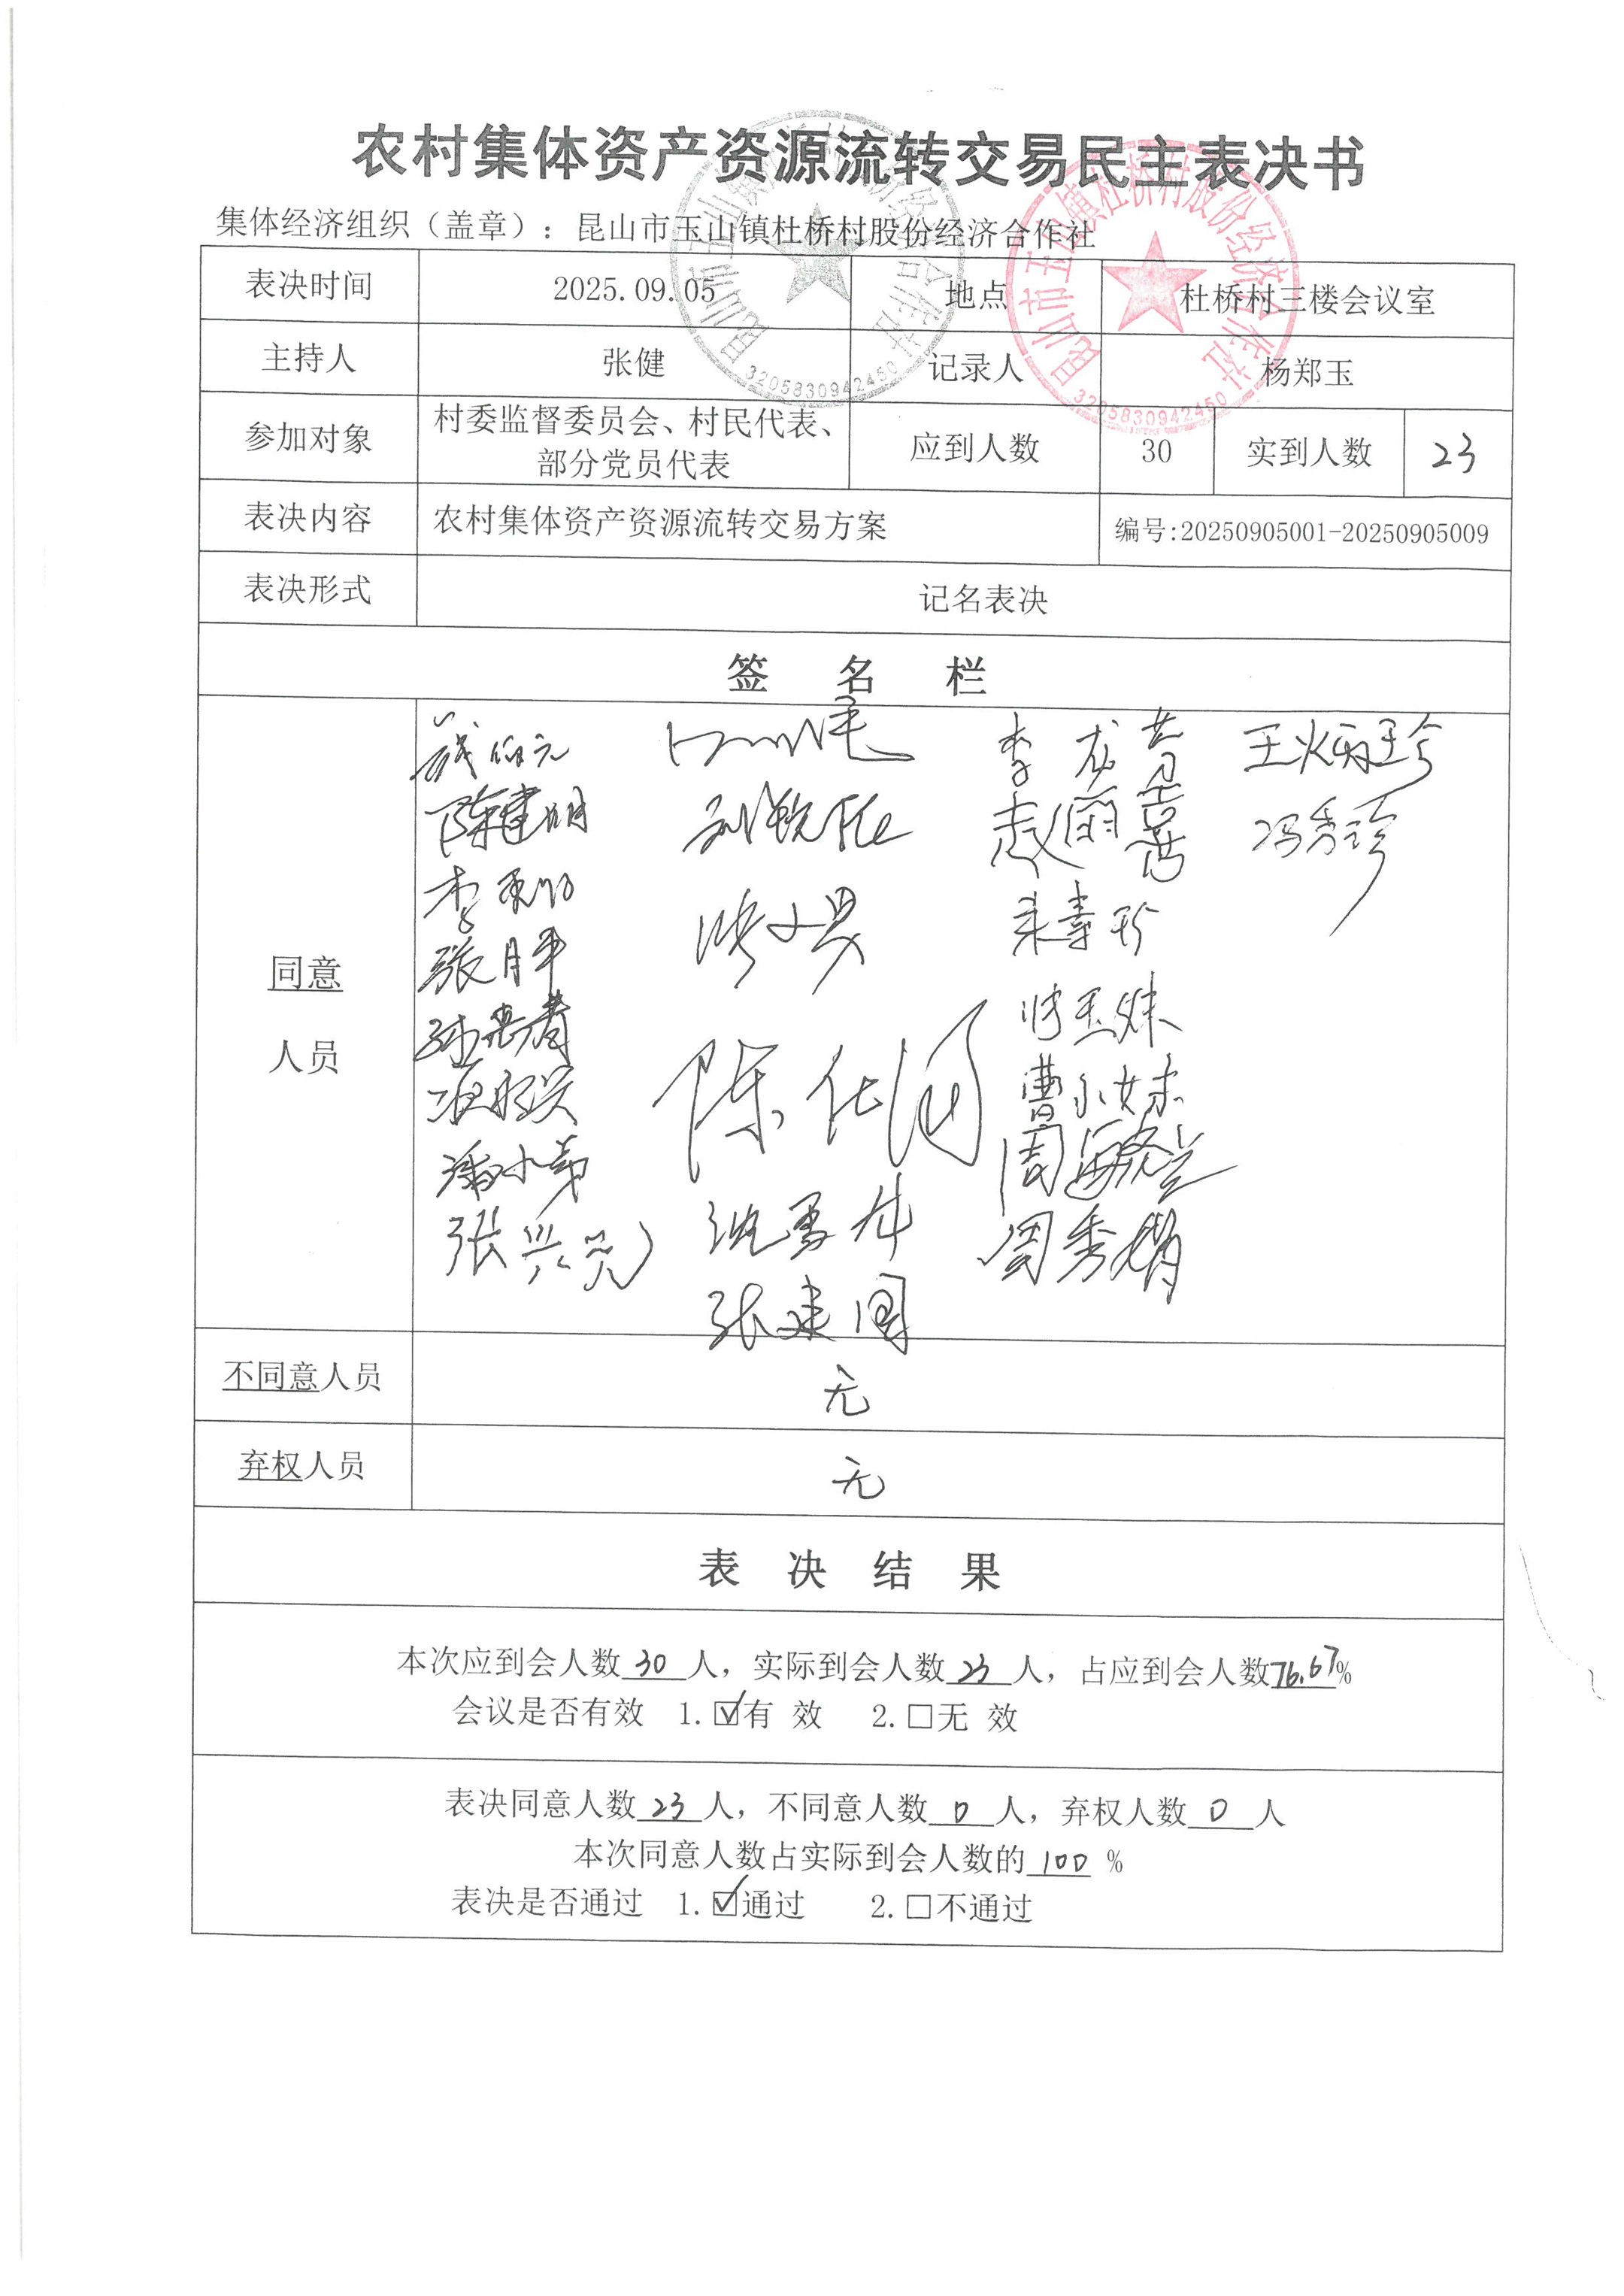 农村集体资产资源流转交易民主表决书
集体经济组织（盖章）：昆山市玉山镇杜桥村股份经济合作社
表决时间 2025.09.05 地点 杜桥村三楼会议室
主持人 张健 记录人 杨郑玉
参加对象 村委监督委员会、村民代表、部分党员代表 应到人数 30 实到人数 23
表决内容 农村集体资产资源流转交易方案 编号:20250905001-20250905009
表决形式 记名表决
签 名 栏
同意
人员
陈建明
张月平
潘小弟
张兴元
张建国
朱寿珍
曹小妹
冯秀珍
不同意人员 无
弃权人员 无
表 决 结 果
本次应到会人数30人，实际到会人数23人，占应到会人数76.67%
会议是否有效 1.☑有 效 2.□无 效
表决同意人数23人，不同意人数0人，弃权人数0人
本次同意人数占实际到会人数的100%
表决是否通过 1.☑通过 2.□不通过
昆山市玉山镇杜桥村股份经济合作社
3205830942450
昆山市玉山镇杜桥村股份经济合作社
3205830942450